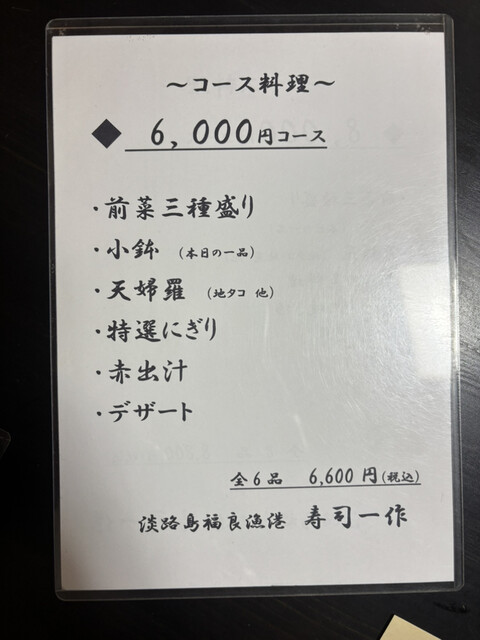 ～コース料理～
◆ 6,000円コース
・前菜三種盛り
・小鉢 （本日の一品）
・天婦羅 （地タコ 他）
・特選にぎり
・赤出汁
・デザート
全6品 6,600円（税込）
淡路島福良漁港 寿司一作